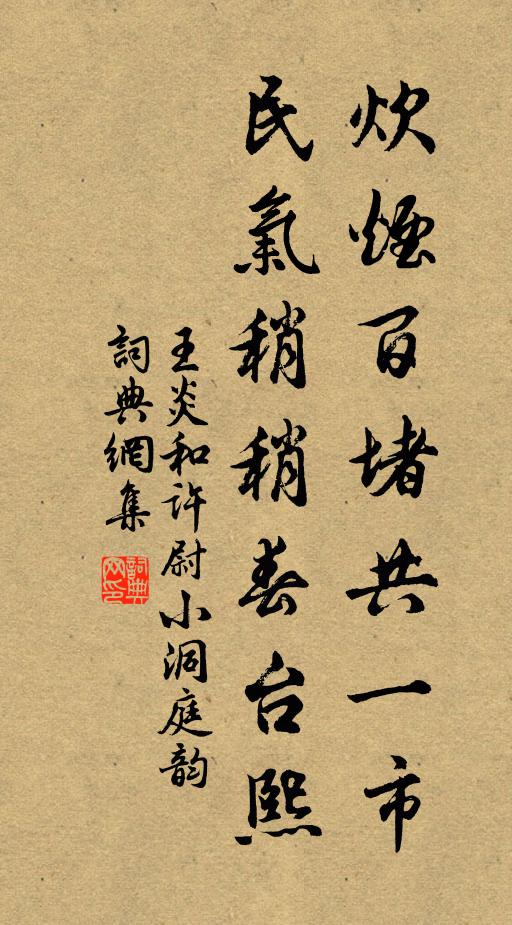 炊煙百堵共一市
民氣稍稍春台熙
王炎和許尉小洞庭韵
詞典網集
詞典網印